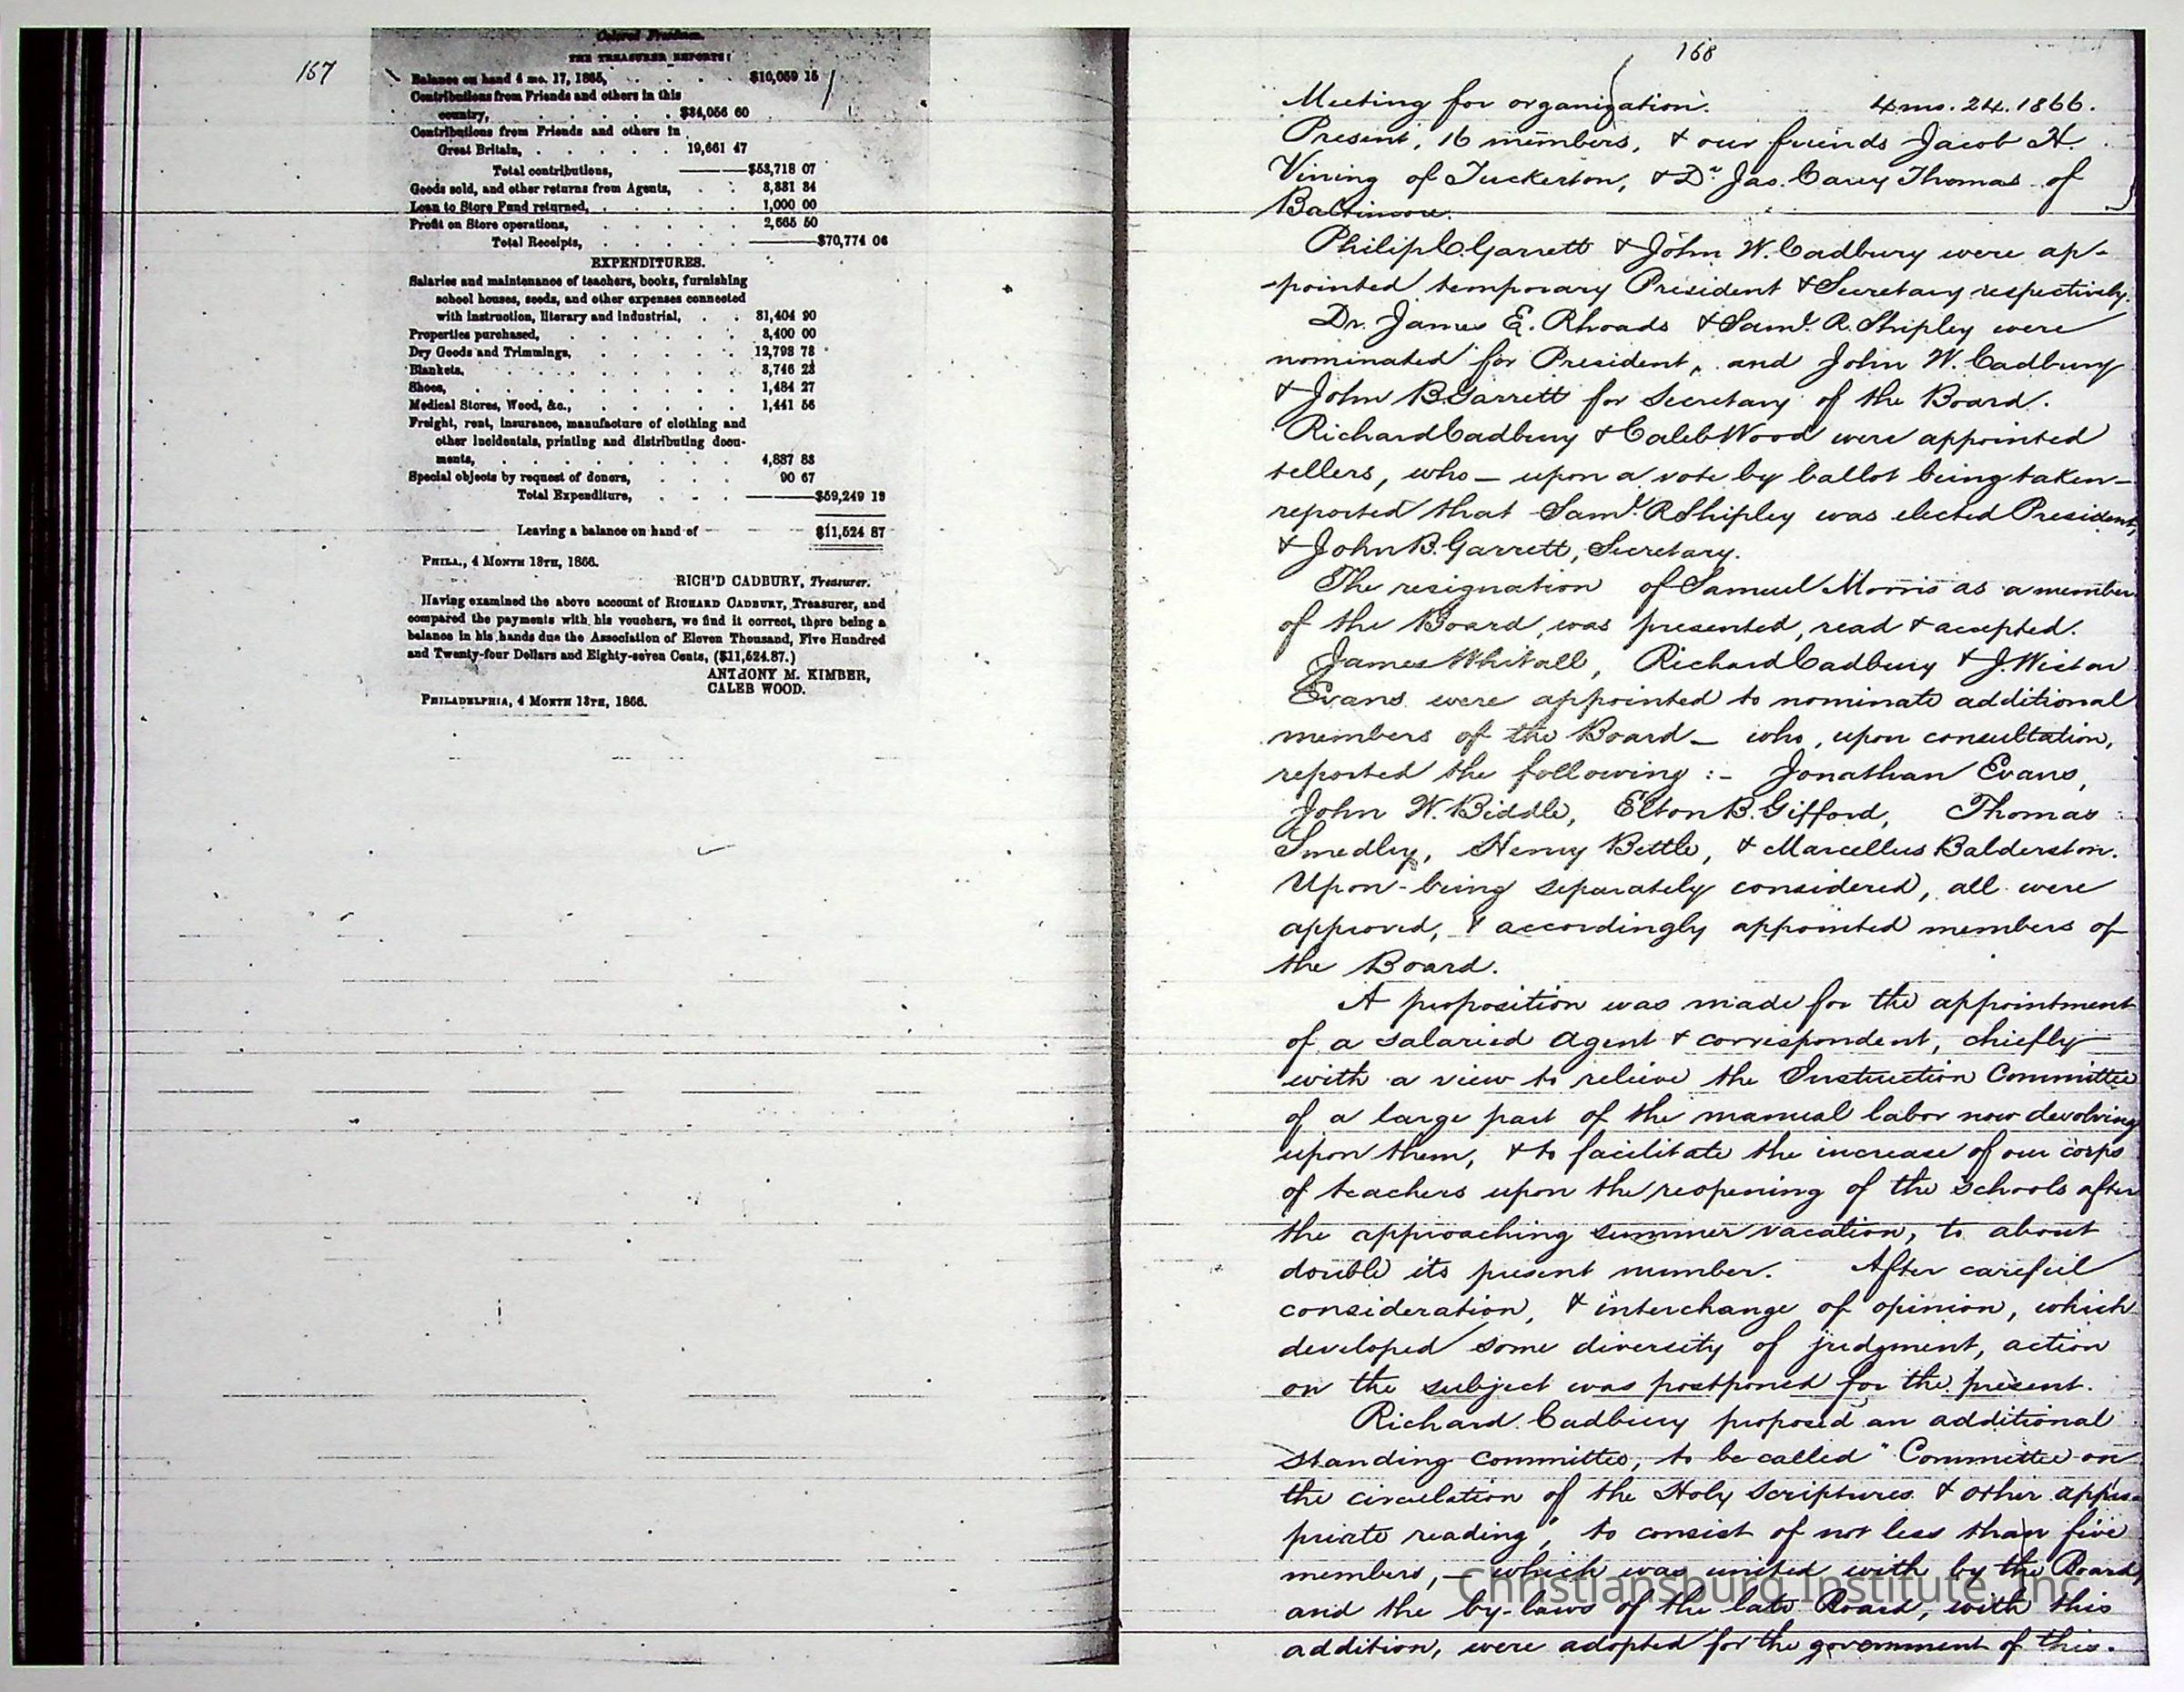 167
Colored Freedmen.
THE TREASURER REPORTS:
Balance on hand 4 mo. 17, 1865, . . . . $10,059 15
Contributions from Friends and others in this
country, . . . . . $34,056 60
Contributions from Friends and others in
Great Britain, . . . . . 19,661 47
Total contributions, $53,718 07
Goods sold, and other returns from Agents, . . 3,331 34
Loan to Store Fund returned, . . . . . 1,000 00
Profit on Store operations, . . . . . 2,665 50
Total Receipts, . . . . . $70,774 06
EXPENDITURES.
Salaries and maintenance of teachers, books, furnishing
school houses, seeds, and other expenses connected
with instruction, literary and industrial, . . 31,404 90
Properties purchased, . . . . . . 3,400 00
Dry Goods and Trimmings, . . . . . 12,793 78
Blankets, . . . . . . . . 3,746 23
Shoes, . . . . . . . . 1,484 27
Medical Stores, Wood, &c., . . . . . 1,441 56
Freight, rent, insurance, manufacture of clothing and
other incidentals, printing and distributing docu-
ments, . . . . . . . . 4,887 83
Special objects by request of donors, . . . 90 67
Total Expenditure, . . . $59,249 19
Leaving a balance on hand of $11,524 87
PHILA., 4 MONTH 13TH, 1866.
RICH'D CADBURY, Treasurer.
Having examined the above account of RICHARD CADBURY, Treasurer, and
compared the payments with his vouchers, we find it correct, there being a
balance in his hands due the Association of Eleven Thousand, Five Hundred
and Twenty-four Dollars and Eighty-seven Cents, ($11,524.87.)
ANTHONY M. KIMBER,
CALEB WOOD.
PHILADELPHIA, 4 MONTH 13TH, 1866.
168
Meeting for organization. 4 mo. 24. 1866.
Present, 16 members, & our friends Jacob H.
Vining of Tuckerton, & Dr. Jas. Carey Thomas of
Baltimore.
Philip C. Garrett & John W. Cadbury were ap-
-pointed temporary President & Secretary respectively.
Dr. James E. Rhoads & Saml. R. Shipley were
nominated for President, and John W. Cadbury
& John B. Garrett for Secretary of the Board.
Richard Cadbury & Caleb Wood were appointed
tellers, who – upon a vote by ballot being taken –
reported that Saml. R Shipley was elected President,
& John B. Garrett, Secretary.
The resignation of Samuel Morris as a member
of the Board, was presented, read & accepted.
James Whitall, Richard Cadbury & J. Wistar
Evans were appointed to nominate additional
members of the Board – who, upon consultation,
reported the following :- Jonathan Evans,
John W. Biddle, Elton B. Gifford, Thomas
Smedley, Henry Bettle, & Marcellus Balderston.
Upon being separately considered, all were
approved, & accordingly appointed members of
the Board.
A proposition was made for the appointment
of a salaried Agent & correspondent, chiefly
with a view to relieve the Instruction Committee
of a large part of the manual labor now devolving
upon them, & to facilitate the increase of our corps
of teachers upon the reopening of the schools after
the approaching summer vacation, to about
double its present number. After careful
consideration, & interchange of opinion, which
developed some diversity of judgment, action
on the subject was postponed for the present.
Richard Cadbury proposed an additional
standing committee, to be called "Committee on
the circulation of the Holy Scriptures & other appro-
priate reading", to consist of not less than five
members, – which was united with by the Board,
and the by-laws of the late Board, with this
addition, were adopted for the government of this.
Christiansburg Institute, Inc.